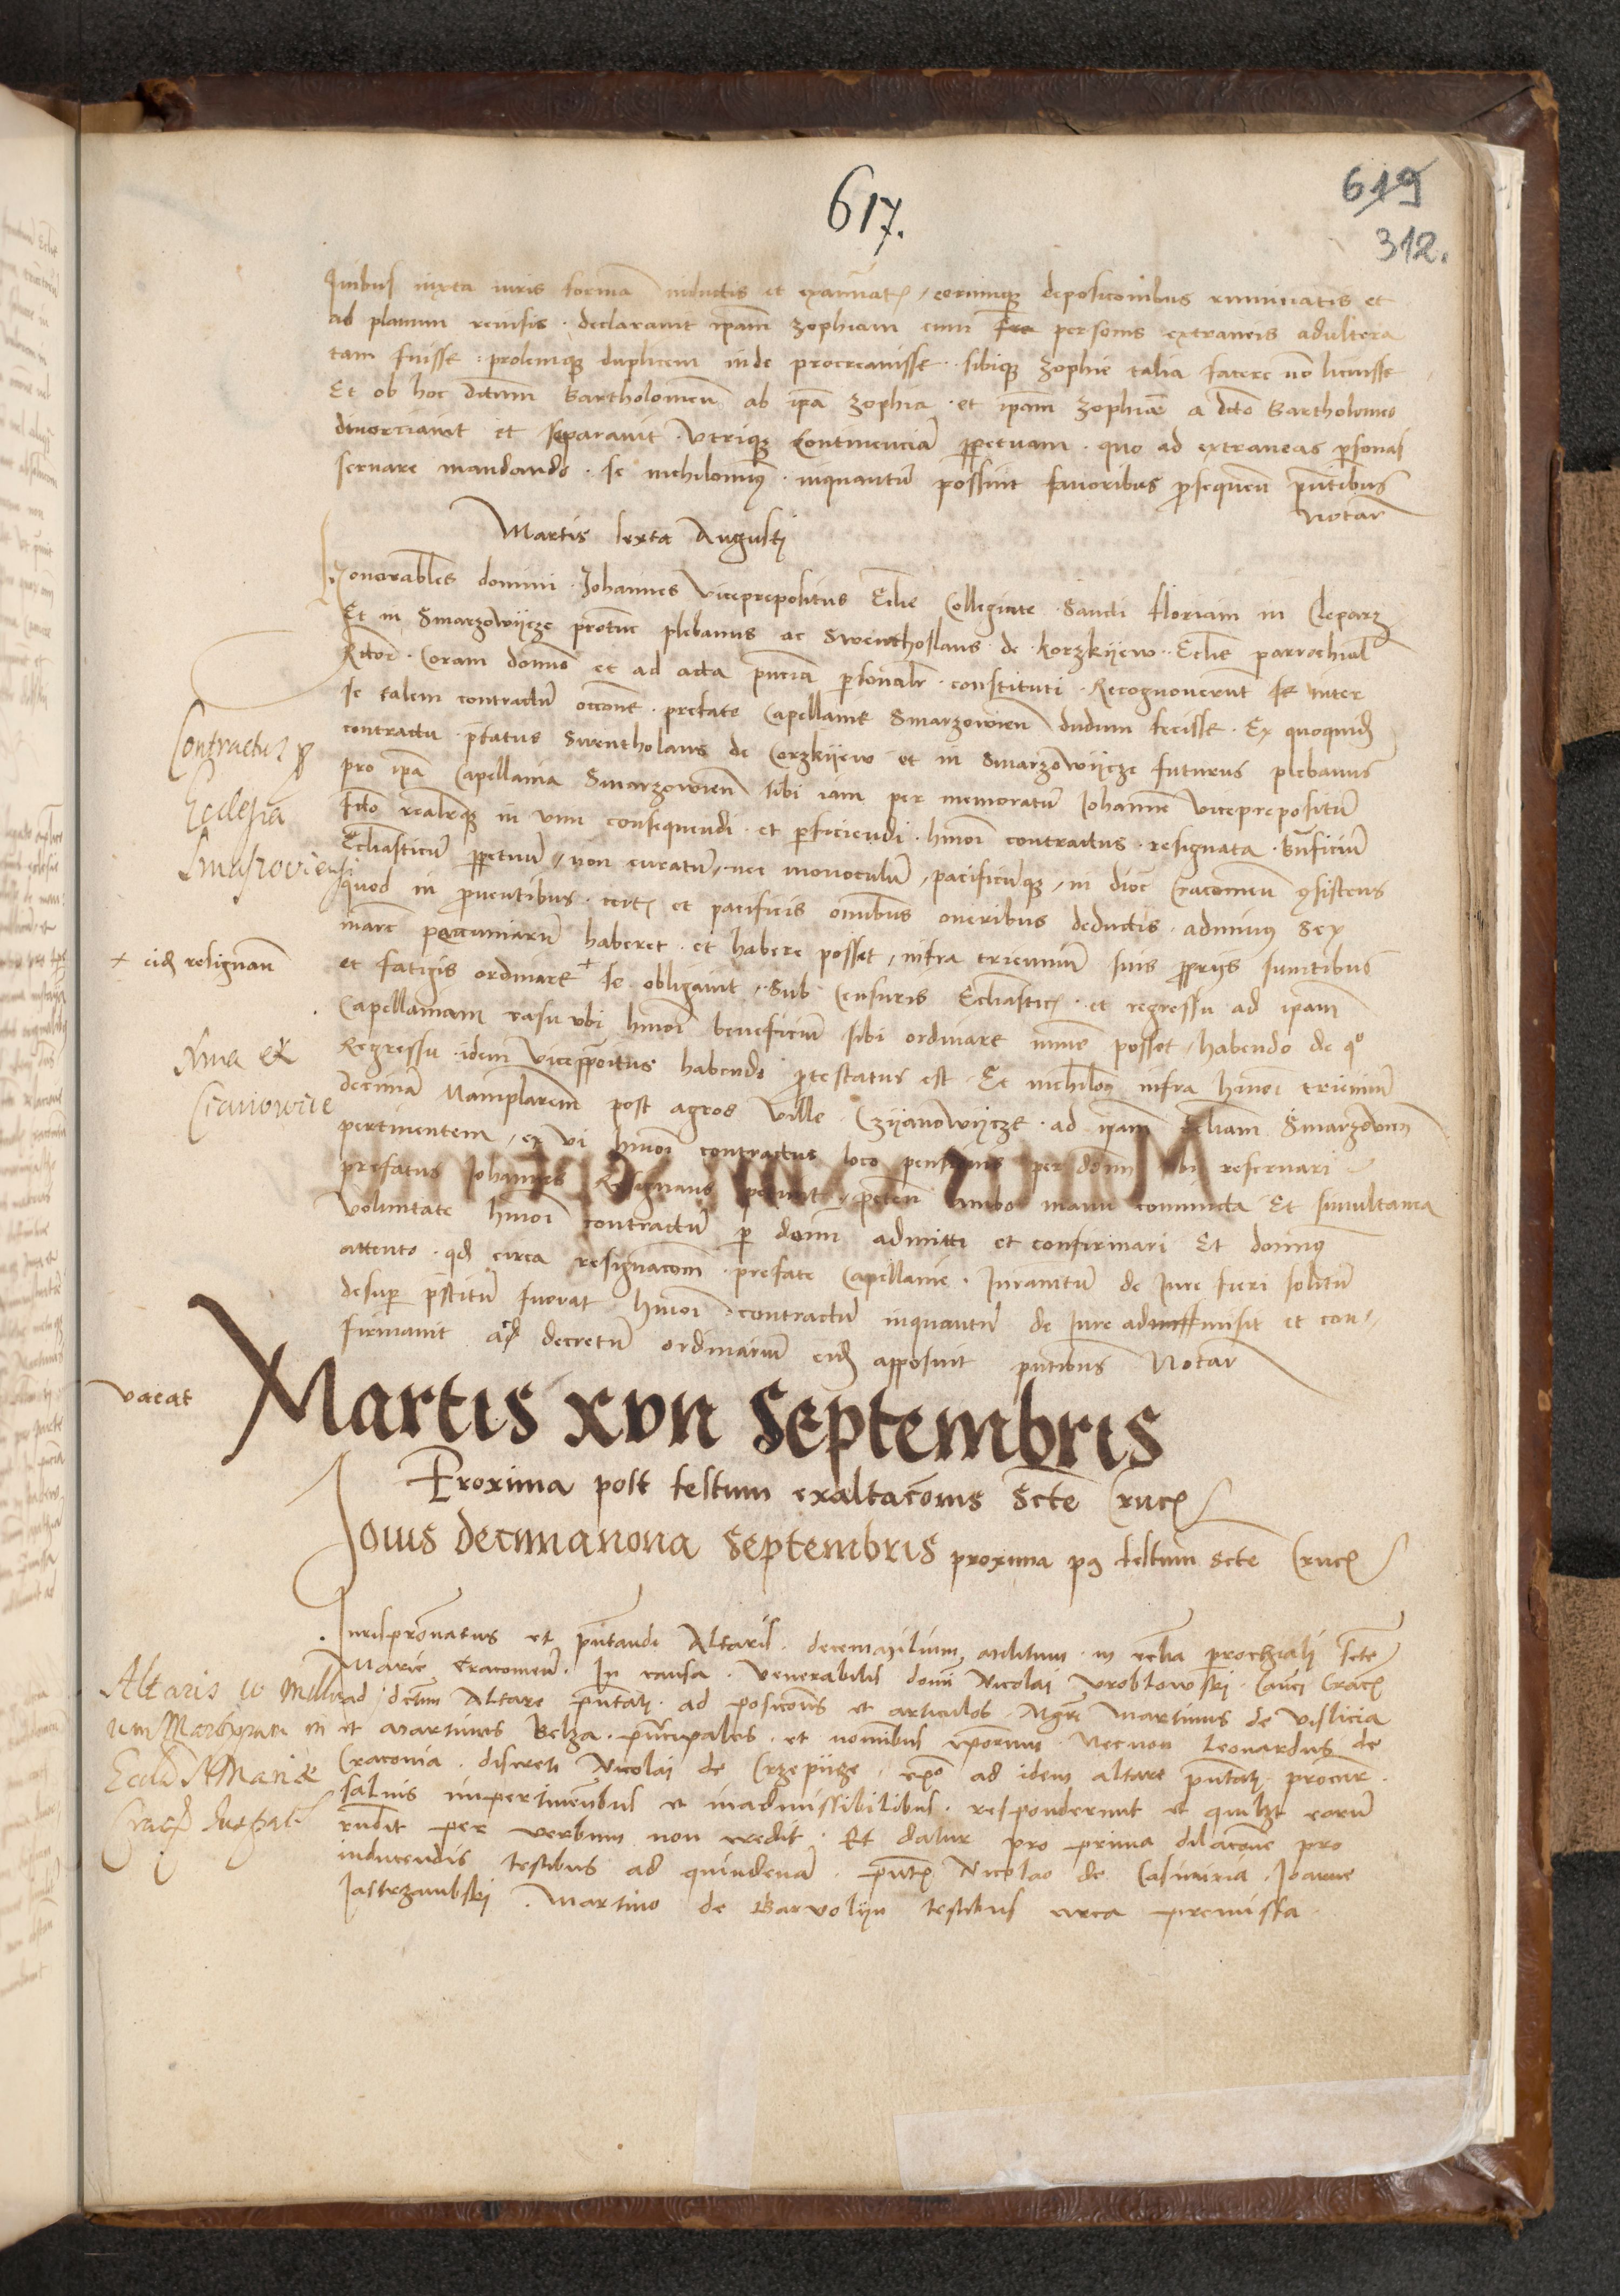 617.
619
312.
Quibus iuxta iuris formam inductis et examinatis, eorumque deposicionibus ruminatis et
ad planum revisis. declaravit ipam Zophiam cum fre personis extraneis adultera
tam fuisse. prolemque duplicem inde procreavisse. sibique Zophie talia facere non licuisse
Et ob hoc dictum Bartholomeum ab ipa Zophia. et ipam Zophiam a dicto Bartholomeo
divorciavit et separavit. Utrique Continenciam perpetuam. quo ad extraneas personas
servare mandando. se nichilominus. inquantum possint favoribus prosequen pntibus
Notar
Martis sexta Augusti
Honorabiles domini. Johannes Viceprepositus Eccie Collegiate. Sancti floriani in Cleparz
Et in Smarzowycze protunc plebanus ac Swenthoslaus de Korzkyew. Eccie parrochial
Rector. Coram domino et ad acta pncia psonalr. constituti. Recognoverunt se inter
se talem contractum occone. prefate Capellanie Smarzowien dudum fecisse. Ex quoquid
contractu. pfatus Swentholaus de Corzkyew et in Smarzowycze futurus plebanus
pro ipa Capellania Smarzowien sibi iam per memoratum Johannem viceprepositum
fcto realiterque in vim consequendi. et perficiendi. hmoi contractus. resignata. Bnficium
Ecclasticum perpetuum, non curatum, nec monoculum, pacificumque, in dioc Cracovien consistens
quod in proventibus. certis et pacificis omnibus oneribus deductis. adminus Sex
marc peccuniarum haberet. et habere posset, infra triennium suis propriis sumtibus
et fatigis ordinare + se obligavit, Sub Censuris Ecclasticis. et regressu ad ipam
Capellaniam casu ubi hmoi beneficium sibi ordinare minime posset, habendo de quo
Regressu. idem Vicepprositus habendo protestatus est. Et nichilominus infra hmoi triennium
decimam Manipularem post agros ville Czyanowycze. ad ipam Eccliam Smarzowien
pertinentem, ex vi hmoi contractus loco pensionis per domin sibi reservari
prefatus Johannes Resignans peciit, peten ambo manu coniuncta Et simultanea
Voluntate hmoi contractum per domin admitti et confirmari Et dominus
attento. quod circa resignacionem. prefate Capellanie. Iuramentum de Iure fieri solitum
desuper prestitum fuerat hmoi contractum inquantum de Iure admisit et con-
firmavit ac decretum ordinarium eid apposuit pntibus Notar
Contractus pro
Ecclesia
Smasroviensi
+ eid resignan
Xma ex
Cianowice
vacat
Martis xvii Septembris
Proxima post festum exaltacionis Scte Crucis
Jovis decimanona Septembris proxima post festum Scte Crucis
Jurispronatus et pntandi Altaris. decemmilium militum in ecclia prochiali scte
Marie Cracovien. In causa. Venerabilis domi Nicolai Wroblowski. Canci Cracs
ad dictum Altare pntati. ad posiciones et articulos. Mgri Martinus de Vislicia
et Martinus Belza. principales. et nominibus ipsorum. Necnon Leonardus de
Cracovia. discreti Nicolai de Crzepyze, expo ad idem altare pntati procur.
salvis impertinentibus et inadmissibilibus. responderunt et quilibet eorum
rndit per verbum non credit. Et datur pro prima dilacione pro
inducendis testibus ad quindenam. pntibus Nicolao de Casimiria. Joanne
Jastrzambski. Martino de Barvolyn testibus circa premissa
Altaris 10 Milli
um Martyrum in
Eccla S Mariae